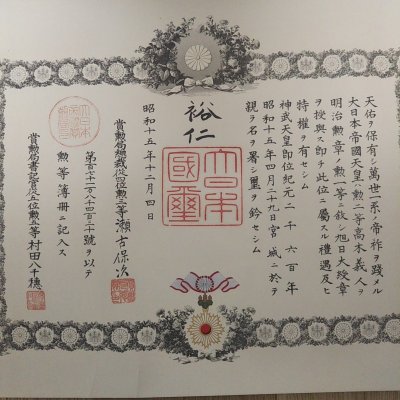 天佑ヲ保有シ萬世一系ノ帝祚ヲ踐メル
大日本帝國天皇ハ勲二等高木義人ヲ
明治勲章ノ勲一等ニ敍シ旭日大綬章
ヲ授與ス即チ此位ニ屬スル禮遇及ヒ
特權ヲ有セシム
神武天皇即位紀元二千六百年
昭和十五年四月二十九日宮城ニ於テ
親ラ名ヲ署シ璽ヲ鈐セシム
裕仁
大日本國璽
昭和十五年十二月四日
賞勲局總裁從四位勲三等瀬古保次
第百六十二万八千四百二十號ヲ以テ
勲等簿冊ニ記入ス
賞勲局書記官從五位勲五等村田八千穗